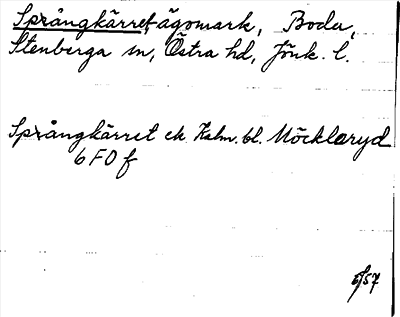 Språngkärret, ägomark, Boda,
Stenberga sn, Östra hd, Jönk. l.
Språngkärret ek Kalm. bl. Möcklaryd
6 F 0 f
5/57